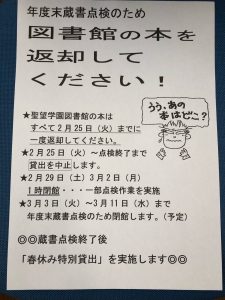 年度末蔵書点検のため
図書館の本を
返却して
ください!
うう、あの
本はどこ?
★聖望学園図書館の本は
すべて2月25日(火)までに
一度返却してください。
★2月25日(火)~点検終了まで
貸出を中止します。
★2月29日(土)3月2日(月)
1時閉館・・・一部点検作業を実施
★3月3日(火)~3月11日(水)まで
年度末蔵書点検のため閉館します。(予定)
◎◎蔵書点検終了後
「春休み特別貸出」を実施します◎◎